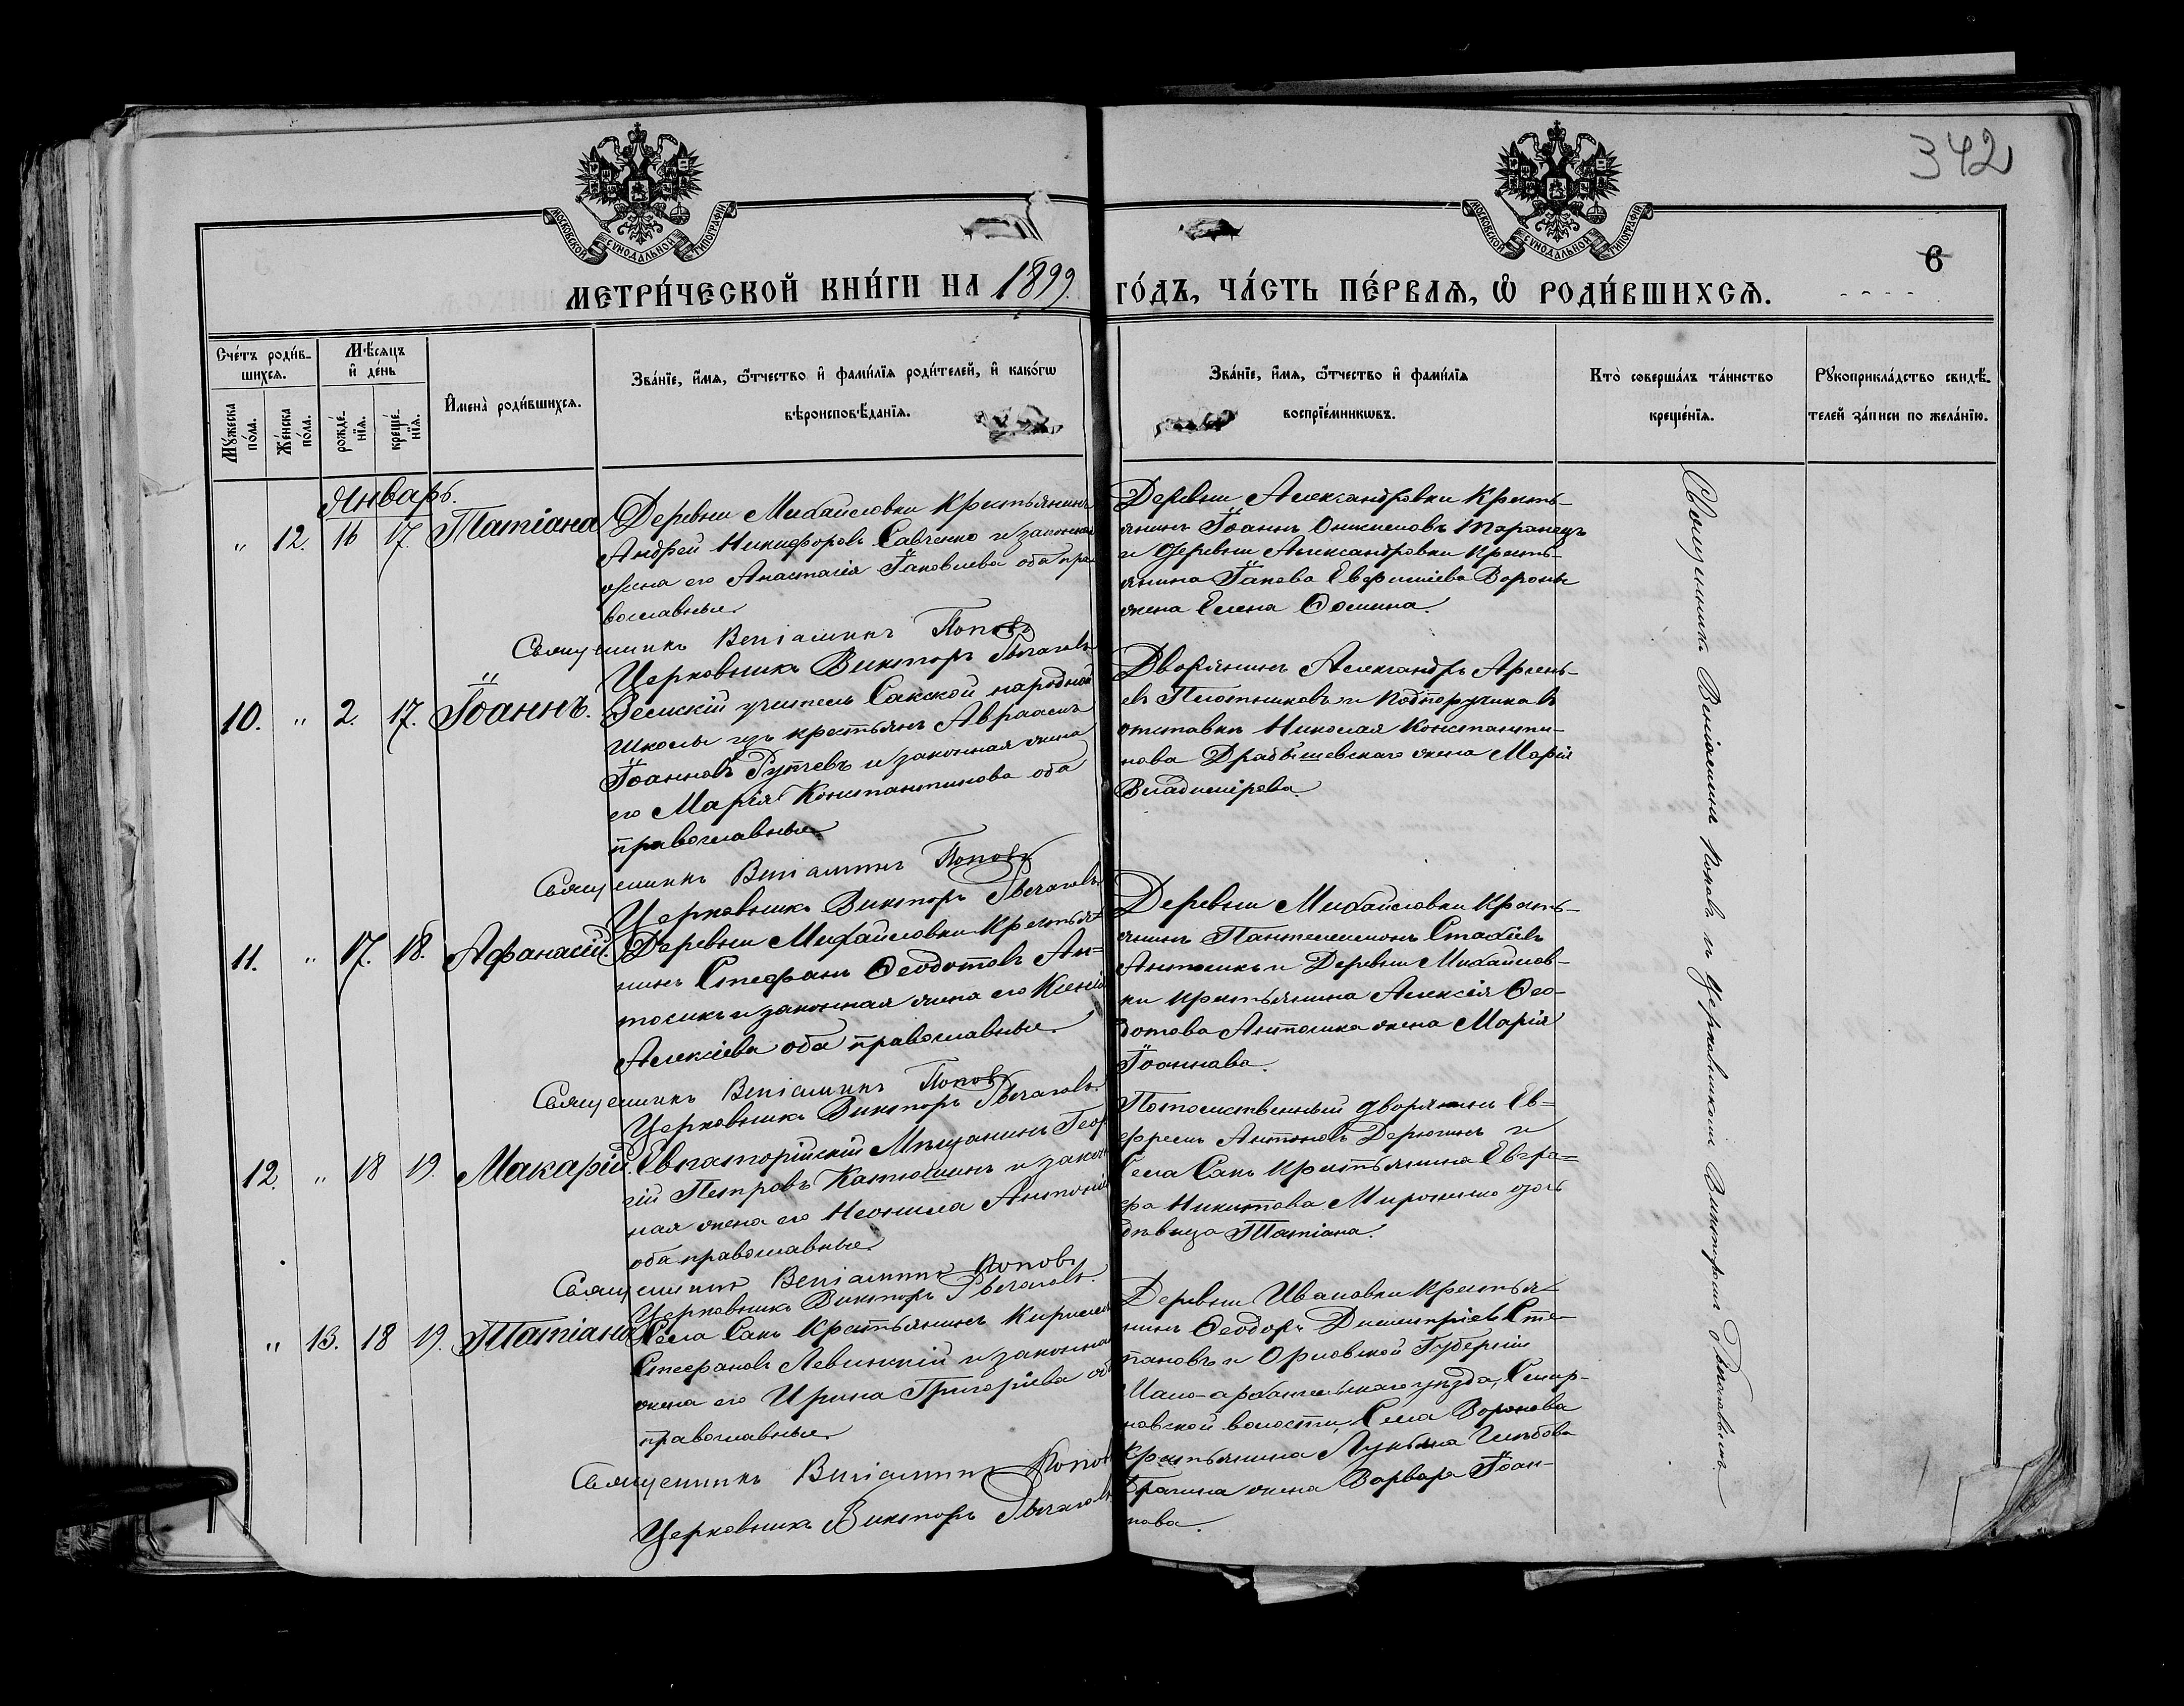 342
6
МОСКОВСКОЙ СѴНОДАЛЬНОЙ ТИПОГРАФІИ
МОСКОВСКОЙ СѴНОДАЛЬНОЙ ТИПОГРАФІИ
МЕТРИ́ЧЕСКОЙ КНИ́ГИ НА 1899. ГО́ДЪ, ЧА́СТЬ ПЕ́РВАЯ, Ѽ РОДИ́ВШИХСЯ.
Сче́тъ роди́в-
шихся.
Мꙋ́жеска по́ла.
Же́нска по́ла.
Мѣ́сяцъ и҆ де́нь
рожде́-нїя.
креще́-нїя.
И҆мена̀ роди́вшихся.
Зва́нїе, и҆́мя, ѻ҆́тчество и҆ фами́лїя роди́телей, и҆ како́гѡ
вѣроисповѣ́данїя.
Зва́нїе, и҆́мя, ѻ҆́тчество и҆ фами́лїя
воспрїе́мникѡвъ.
Кто̀ соверша́лъ та́инство
креще́нїя.
Рꙋкоприкла́дство свидѣ́-
телей за́писи по жела́нїю.
Январь.
„ 12. 16 17. Татіана
Деревни Михайловки Крестьянинъ
Андрей Никифоровъ Савченко и законная
жена его Анастасія Іаковлева оба пра-
вославные.
Священникъ Веніаминъ Поповъ
Церковникъ Викторъ
Деревни Александровки Кресть-
янинъ Іоаннъ Онисимовъ Таранецъ
и Деревни Александровки Кресть-
янина Іакова Евфиміева Вороны
жена Елена Ѳомина.
10. „ 2. 17. Іоаннъ.
Земскій учитель Сакской народной
школы изъ крестьянъ Авраамъ
Іоанновъ и законная жена
его Марія Константинова оба
православные
Священникъ Веніаминъ Поповъ
Церковникъ Викторъ
Дворянинъ Александръ Арсень-
евъ Плотниковъ и Подпоручика въ
отставкѣ Николая Константи-
нова Драбышевскаго жена Марія
Владимірова.
11. „ 17. 18. Афанасій.
Деревни Михайловки Крестья-
нинъ Стефанъ Ѳеодотовъ Ан-
тосикъ и законная жена его Ксенія
Алексіева оба православные.
Священникъ Веніаминъ Поповъ
Церковникъ Викторъ
Деревни Михайловки Кресть-
янинъ Пантелеимонъ Стахіевъ
Антосикъ и Деревни Михайлов-
ки крестьянина Алексія Ѳео-
дотова Антосика жена Марія
Іоаннова.
12. „ 18 19. Макарій.
Евпаторійскій Мѣщанинъ Геор-
гій Петровъ Катюшинъ и закон-
ная жена его Неонила Антоній
оба православные.
Священникъ Веніаминъ Поповъ
Церковникъ Викторъ
Потомственный дворянинъ Ев-
фремъ Антоновъ Дерюгинъ и
Села Сакъ крестьянина Евгра-
фа Никитова Мироненко дочь
дѣвица Татіана.
„ 13. 18 19. Татіана
Села Сакъ Крестьянинъ Кириллъ
Стефановъ Левинскій и законная
жена его Ирина Григоріева оба
православные.
Священникъ Веніаминъ Поповъ
Церковникъ Викторъ
Деревни Ивановки Крестья-
нинъ Ѳеодоръ Димитріевъ Сте-
пановъ и Орловской Губерніи
Мало-архангельскаго уѣзда,
волости, Села Воронова
Крестьянина Лукьяна Глѣбова
Брагина жена Варвара Іоан-
нова.
Священникъ Веніаминъ Поповъ и Церковникомъ Викторомъ